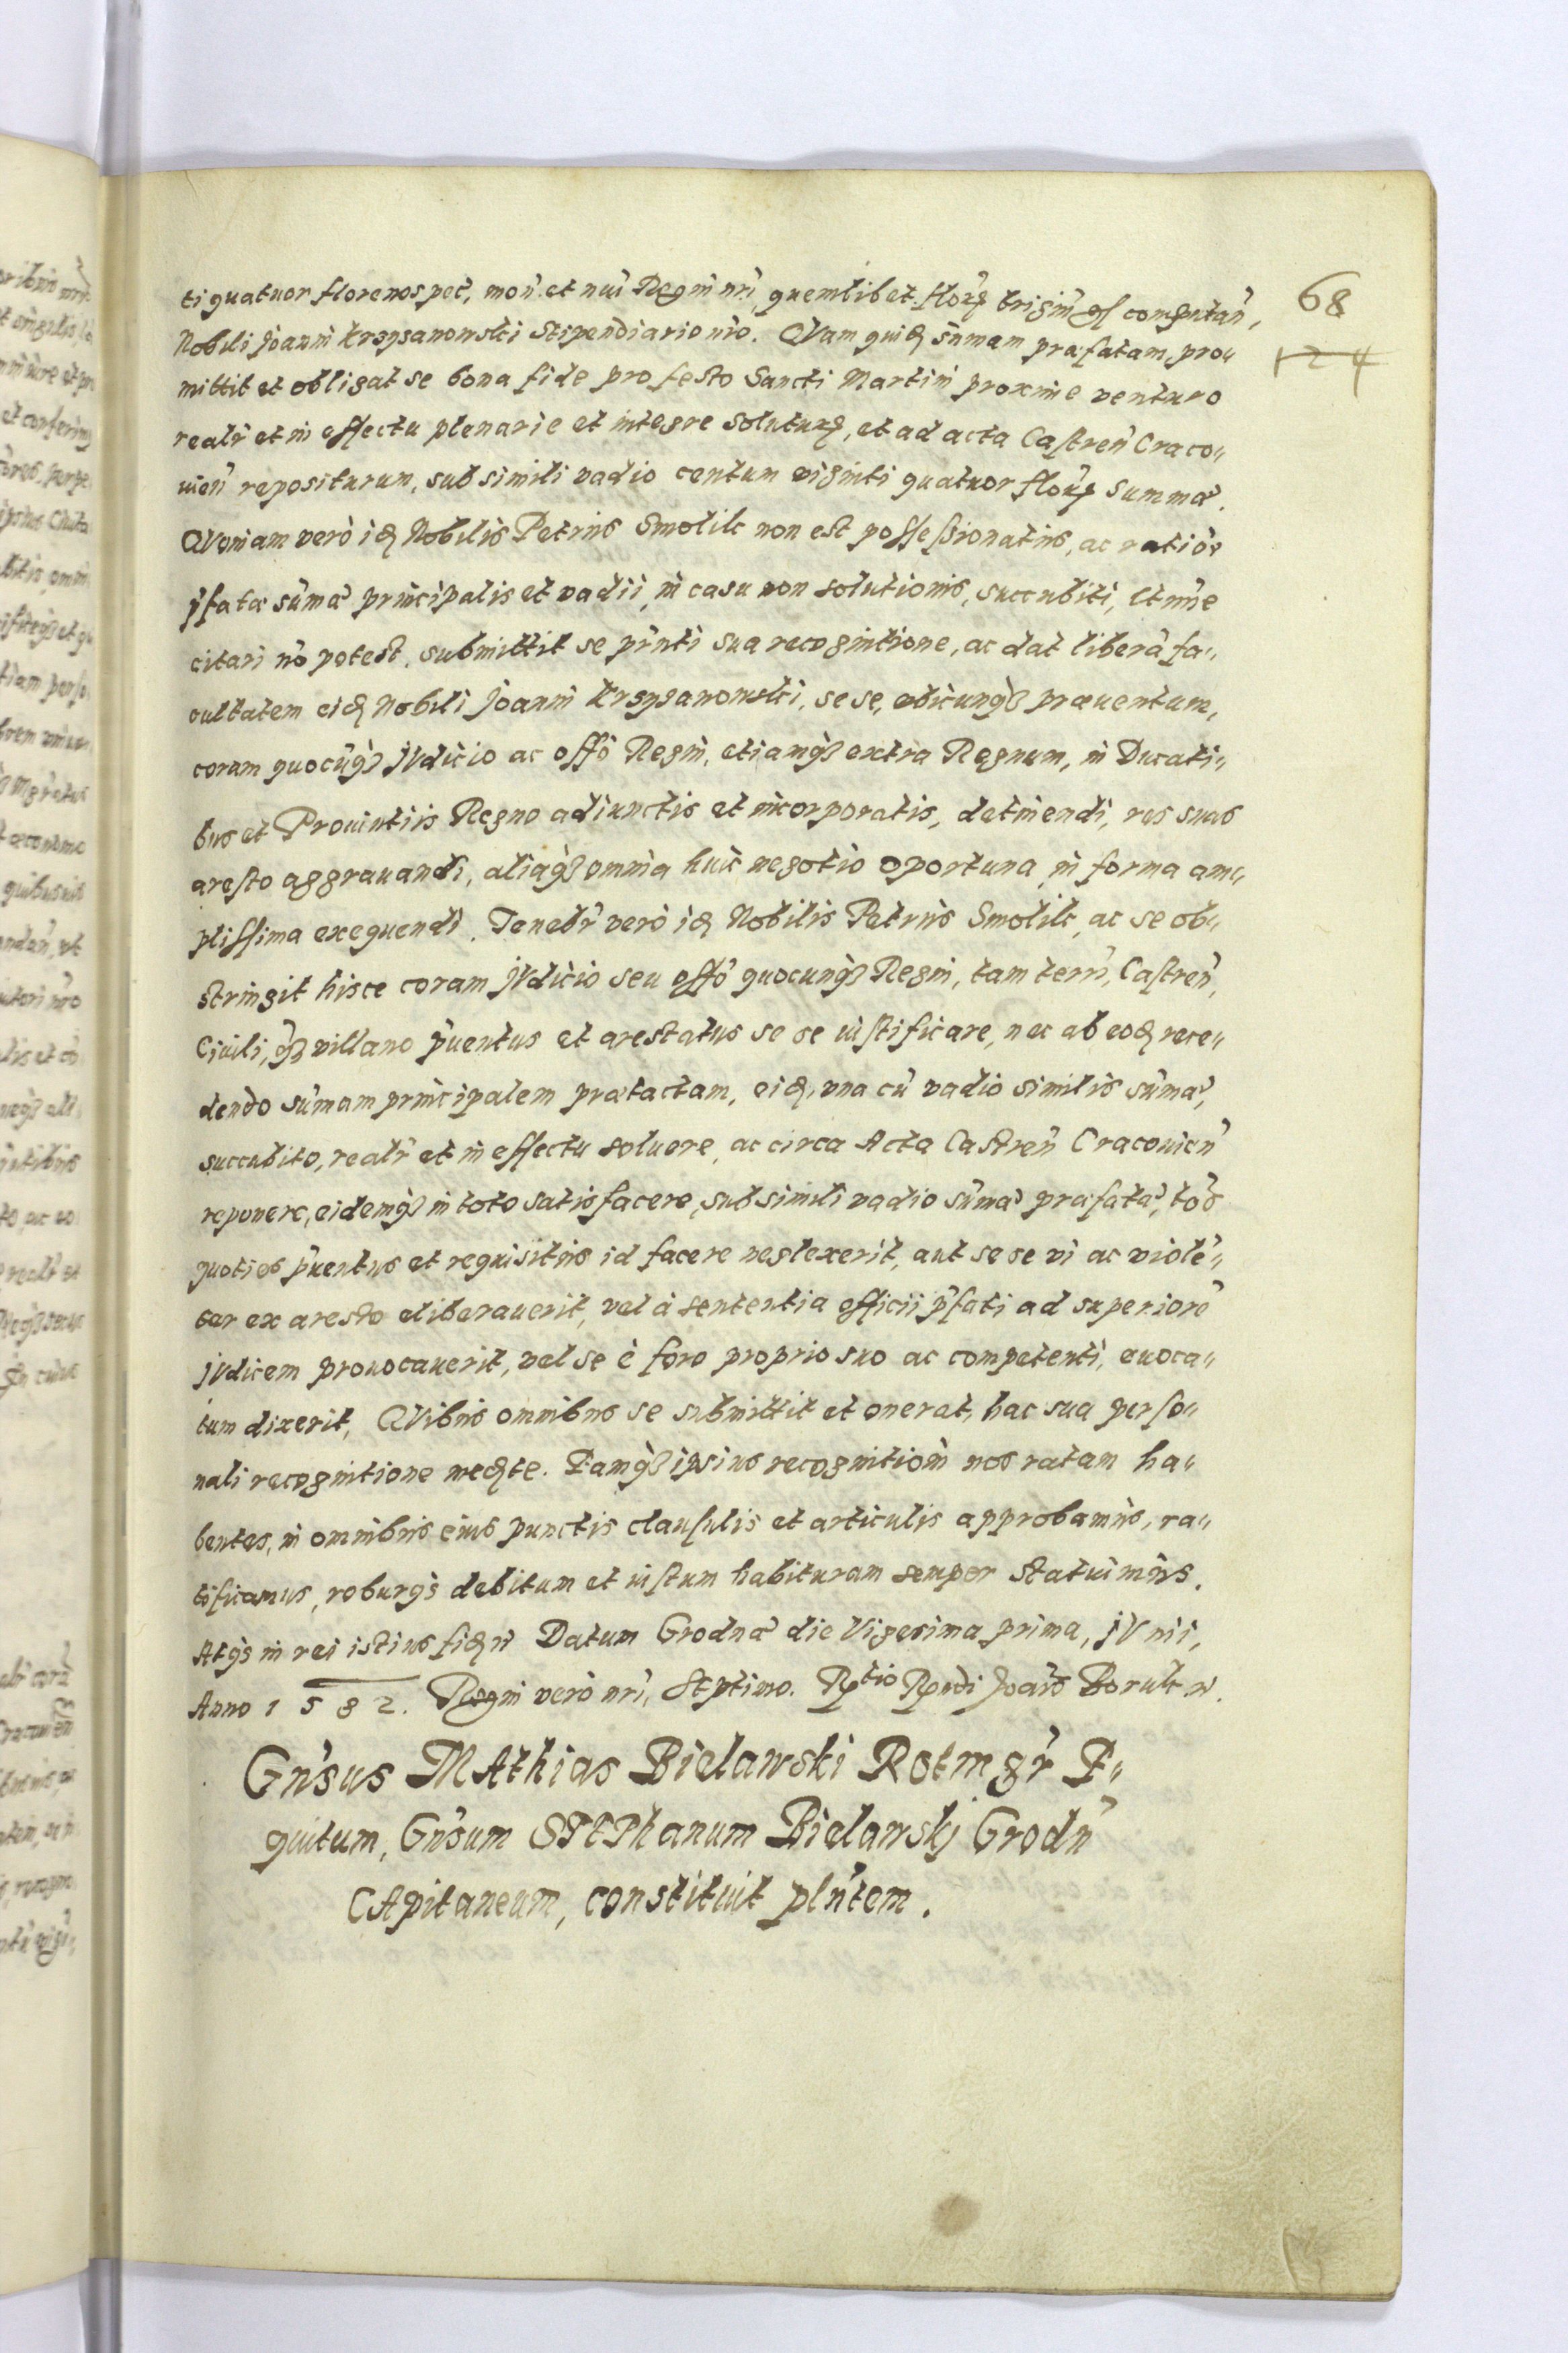 68
124
ti quatuor florenos pec̃, moñ et nũi Regni nr̃i, quemlibet floreq̃ trigiñ gſ computañ,
Nobili Joanni Krzyzanowski Stipendiario nr̃o. QVam quidẽ sũmam præfatam, pro„
mittit et obligat se bona fide pro festo Sancti Martini proxime venturo
realr̃ et in effectu plenarie et integre soluturũ, et ad acta Caſtreñ Craco„
vieñ repositurum, sub simili vadio centum viginti quatuor floreñ summæ.
QVoniam verò idẽ Nobilis Petrus Smolik non est poſſeſsionatus, ac ratiõe
p̃fatæ sũmæ principalis et vadii, in casu non solutionis, succubiti, et
citari nõ potest, submittit se pñti sua recognitione, ac dat liberã fa„
cultatem eidẽ Nobili Joanni Krzyzanowski, se se, vbicunqȝ præuentum,
coram quocũqȝ jVdicio ac offõ Regni, etiamqȝ extra Regnum, in Ducati„
bus et Prouintiis Regno adiunctis et incorporatis, detinendi, res suas
areſto aggrauandi, aliaqȝ omnia huic negotio oportuna in forma am„
pliſſima exequendi. Tenetr̃ verò idẽ Nobilis Petrus Smolik, ac se ob„
stringit hisce coram jVdicio seu offõ quocunqȝ Regni, tam terr̃, Caſtreñ,
Ciuili, qȝ villano p̃uentus et arestatus se se iuſtificare, nec ab eodẽ rece„
dendo sũmam principalem prætactam, eidẽ, vna cũ vadio similis sũmæ,
succubito, realr̃ et in effectu soluere, ac circa Acta Castreñ Cracouieñ
reponere, eidemqȝ in toto satisfacere, sub simili vadio sũmæ præfatæ, toẽs
quoties p̃uentus et requisitus id facere neglexerit, aut se se vi ac violẽ„
ter ex aresto eliberauerit, vel à sententia officii p̃fati ad superiorẽ
jVdicem prouocauerit, vel se è foro proprio suo ac competenti, euoca„
tum dixerit, QVibus omnibus se submittit et onerat, hac sua perſo„
nali recognitione medẽte. Eamqȝ ipsius recognitioñ nos ratam ha„
bentes, in omnibus eius punctis clauſulis et articulis approbamus, ra„
tificamus, roburqȝ debitum et iuſtum habituram semper statuimus.
Atqȝ in rei istius fidẽ Datum Grodnæ die Vigesima prima, jVnii,
Anno 1582. Regni verò nr̃i, Septimo. Rtio Rndi Joañis Borukw.
Gñsus MAthias Bielawski Rotmgr̃ E„
quitum, Gñsum STEPhanum Bielawskj Grodñ
CApitaneum, constituit plñtem.